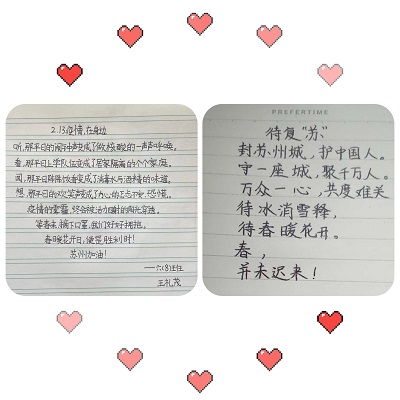 2.13疫情,在身边
听,那平日的闹钟声变成了做核酸的一声声呼唤。
看,那平日上学队伍变成了居家隔离的个个家庭。
闻,那平日阵阵饭香变成了消毒水与酒精的味道。
想,那平日的欢笑声变成了内心的忐忑不安、恐慌。
疫情的雾霾,终会被活力的阳光穿透。
等春来,摘下口罩,我们好好拥抱。
春暖花开日,便是胜利时!
苏州加油!
王礼茂
PREFERTIME
待复“苏”
封苏州城,护中国人。
守一座城,聚千万人。
万众一心,共度难关
待冰消雪释,
待春暖花开。
春,
并未迟来!